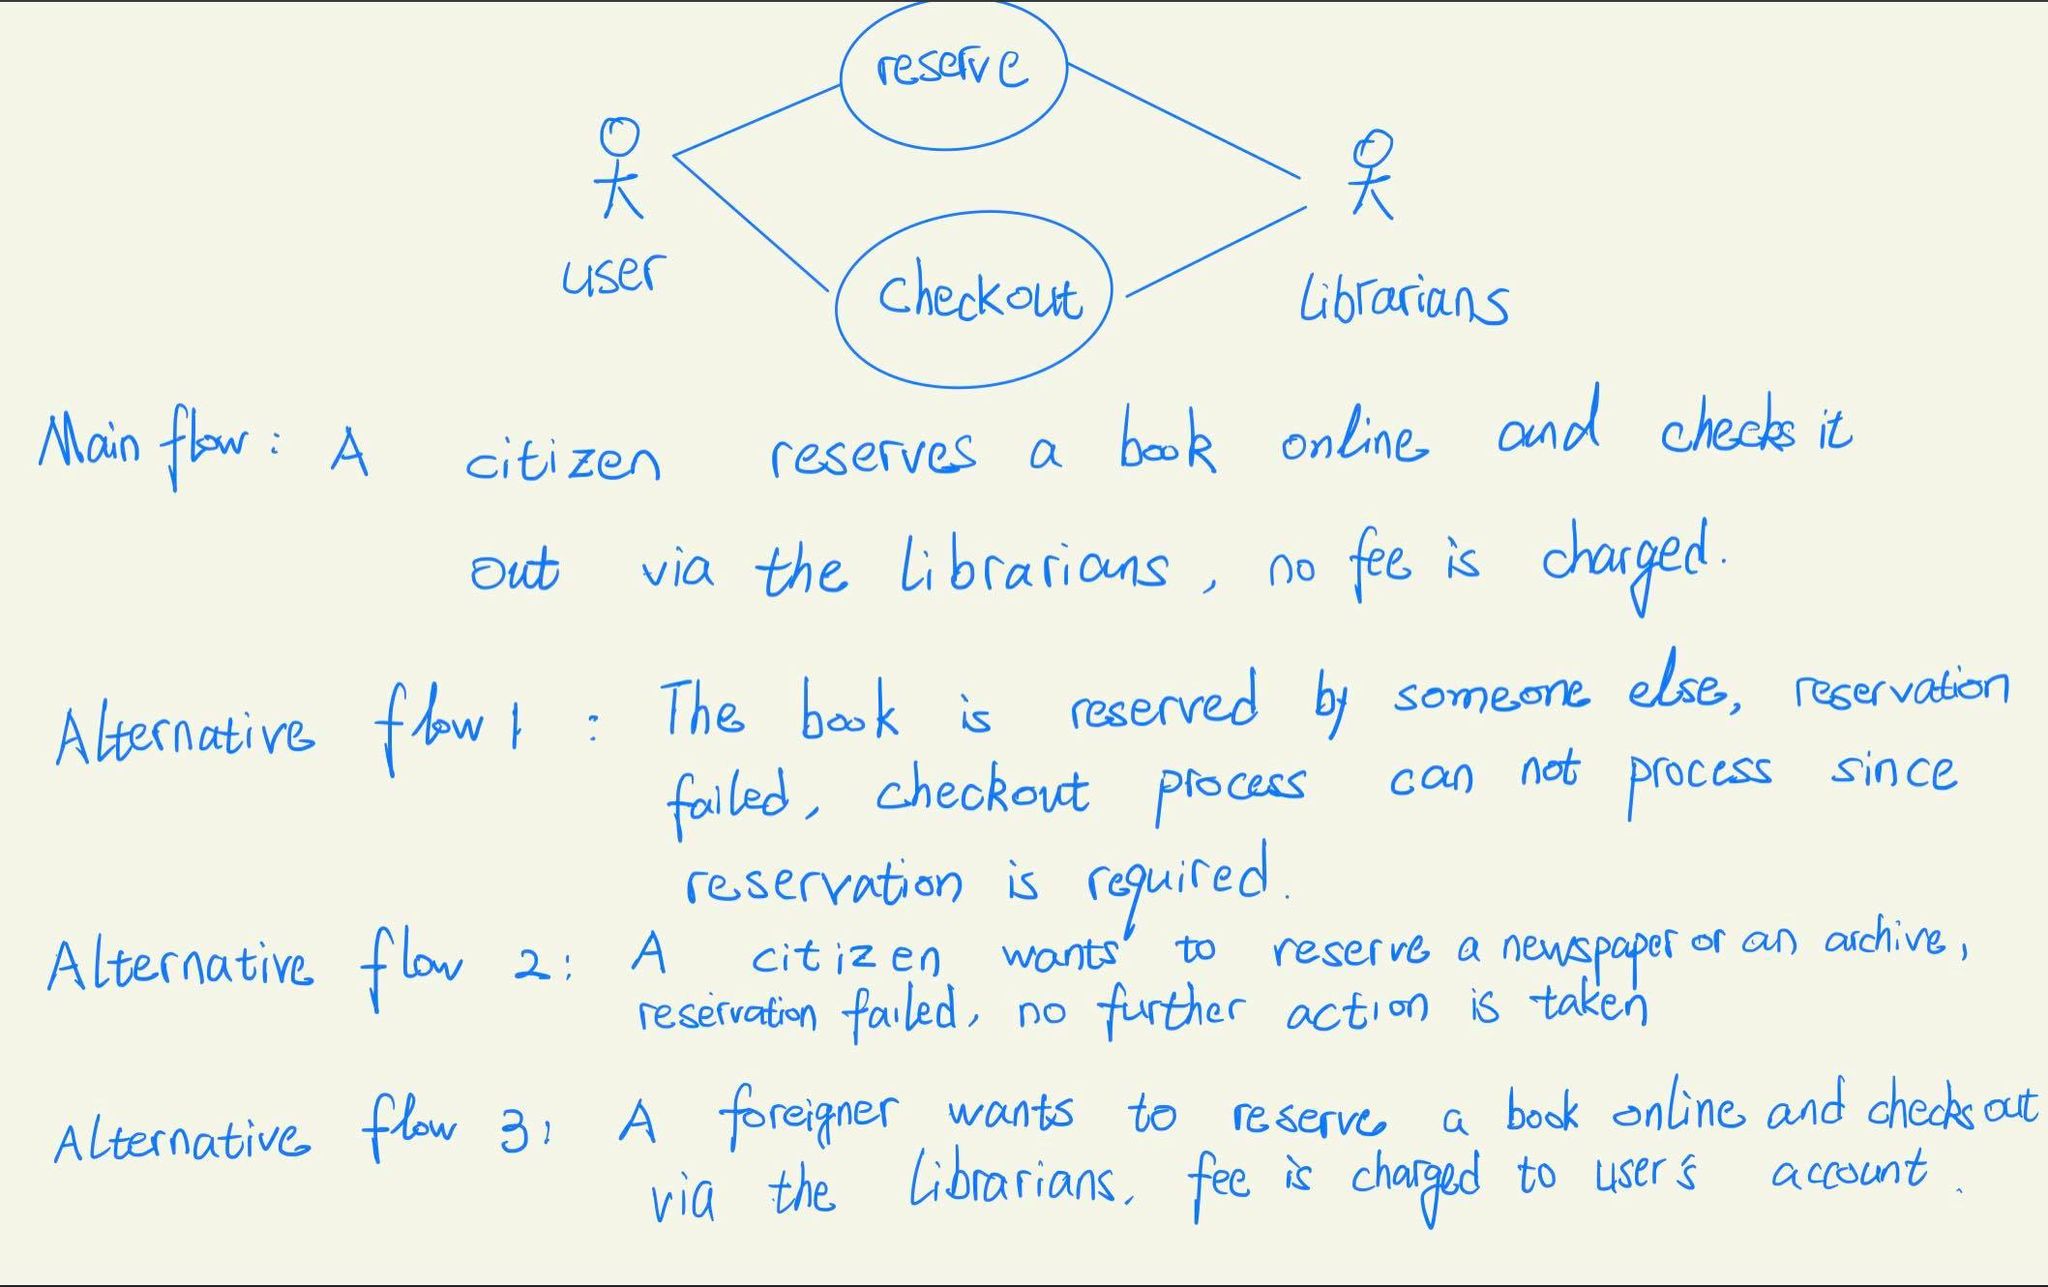 reserve
user
checkout
librarians
Main flow: A citizen reserves a book online and checks it
out via the librarians, no fee is charged.
Alternative flow 1: The book is reserved by someone else, reservation
failed, checkout process can not process since
reservation is required.
Alternative flow 2: A citizen wants to reserve a newspaper or an archive,
reservation failed, no further action is taken
Alternative flow 3: A foreigner wants to reserve a book online and checks out
via the librarians, fee is charged to user's account.